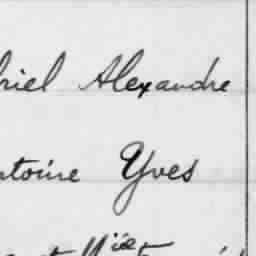 riel Alexandre
ntoine Yves